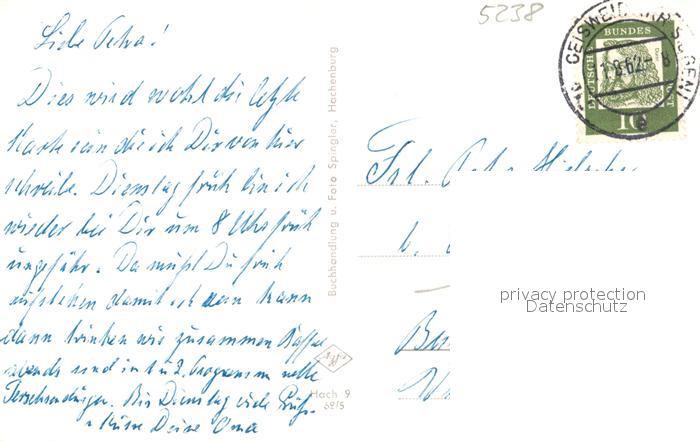 5238
Liebe Petra!
Dies wird wohl die letzte
Karte sein die ich Dir von hier
schreibe. Dienstag früh bin ich
wieder bei Dir um 8 Uhr früh
ungefähr. Da mußt Du früh
aufstehen damit ich dann kann
dann trinken wir zusammen Kaffee
abends sind im 1 u 2. Programm nette
Bis Dienstag viele Grüße
u Küsse Deine Oma
Buchhandlung u. Foto Spingler, Hachenburg
Hach 9
62/5
GEISWEID (KR SIEGEN)
1.8.62.-8
a
DEUTSCHE BUNDESPOST
10
Frl. Petra
privacy protection
Datenschutz